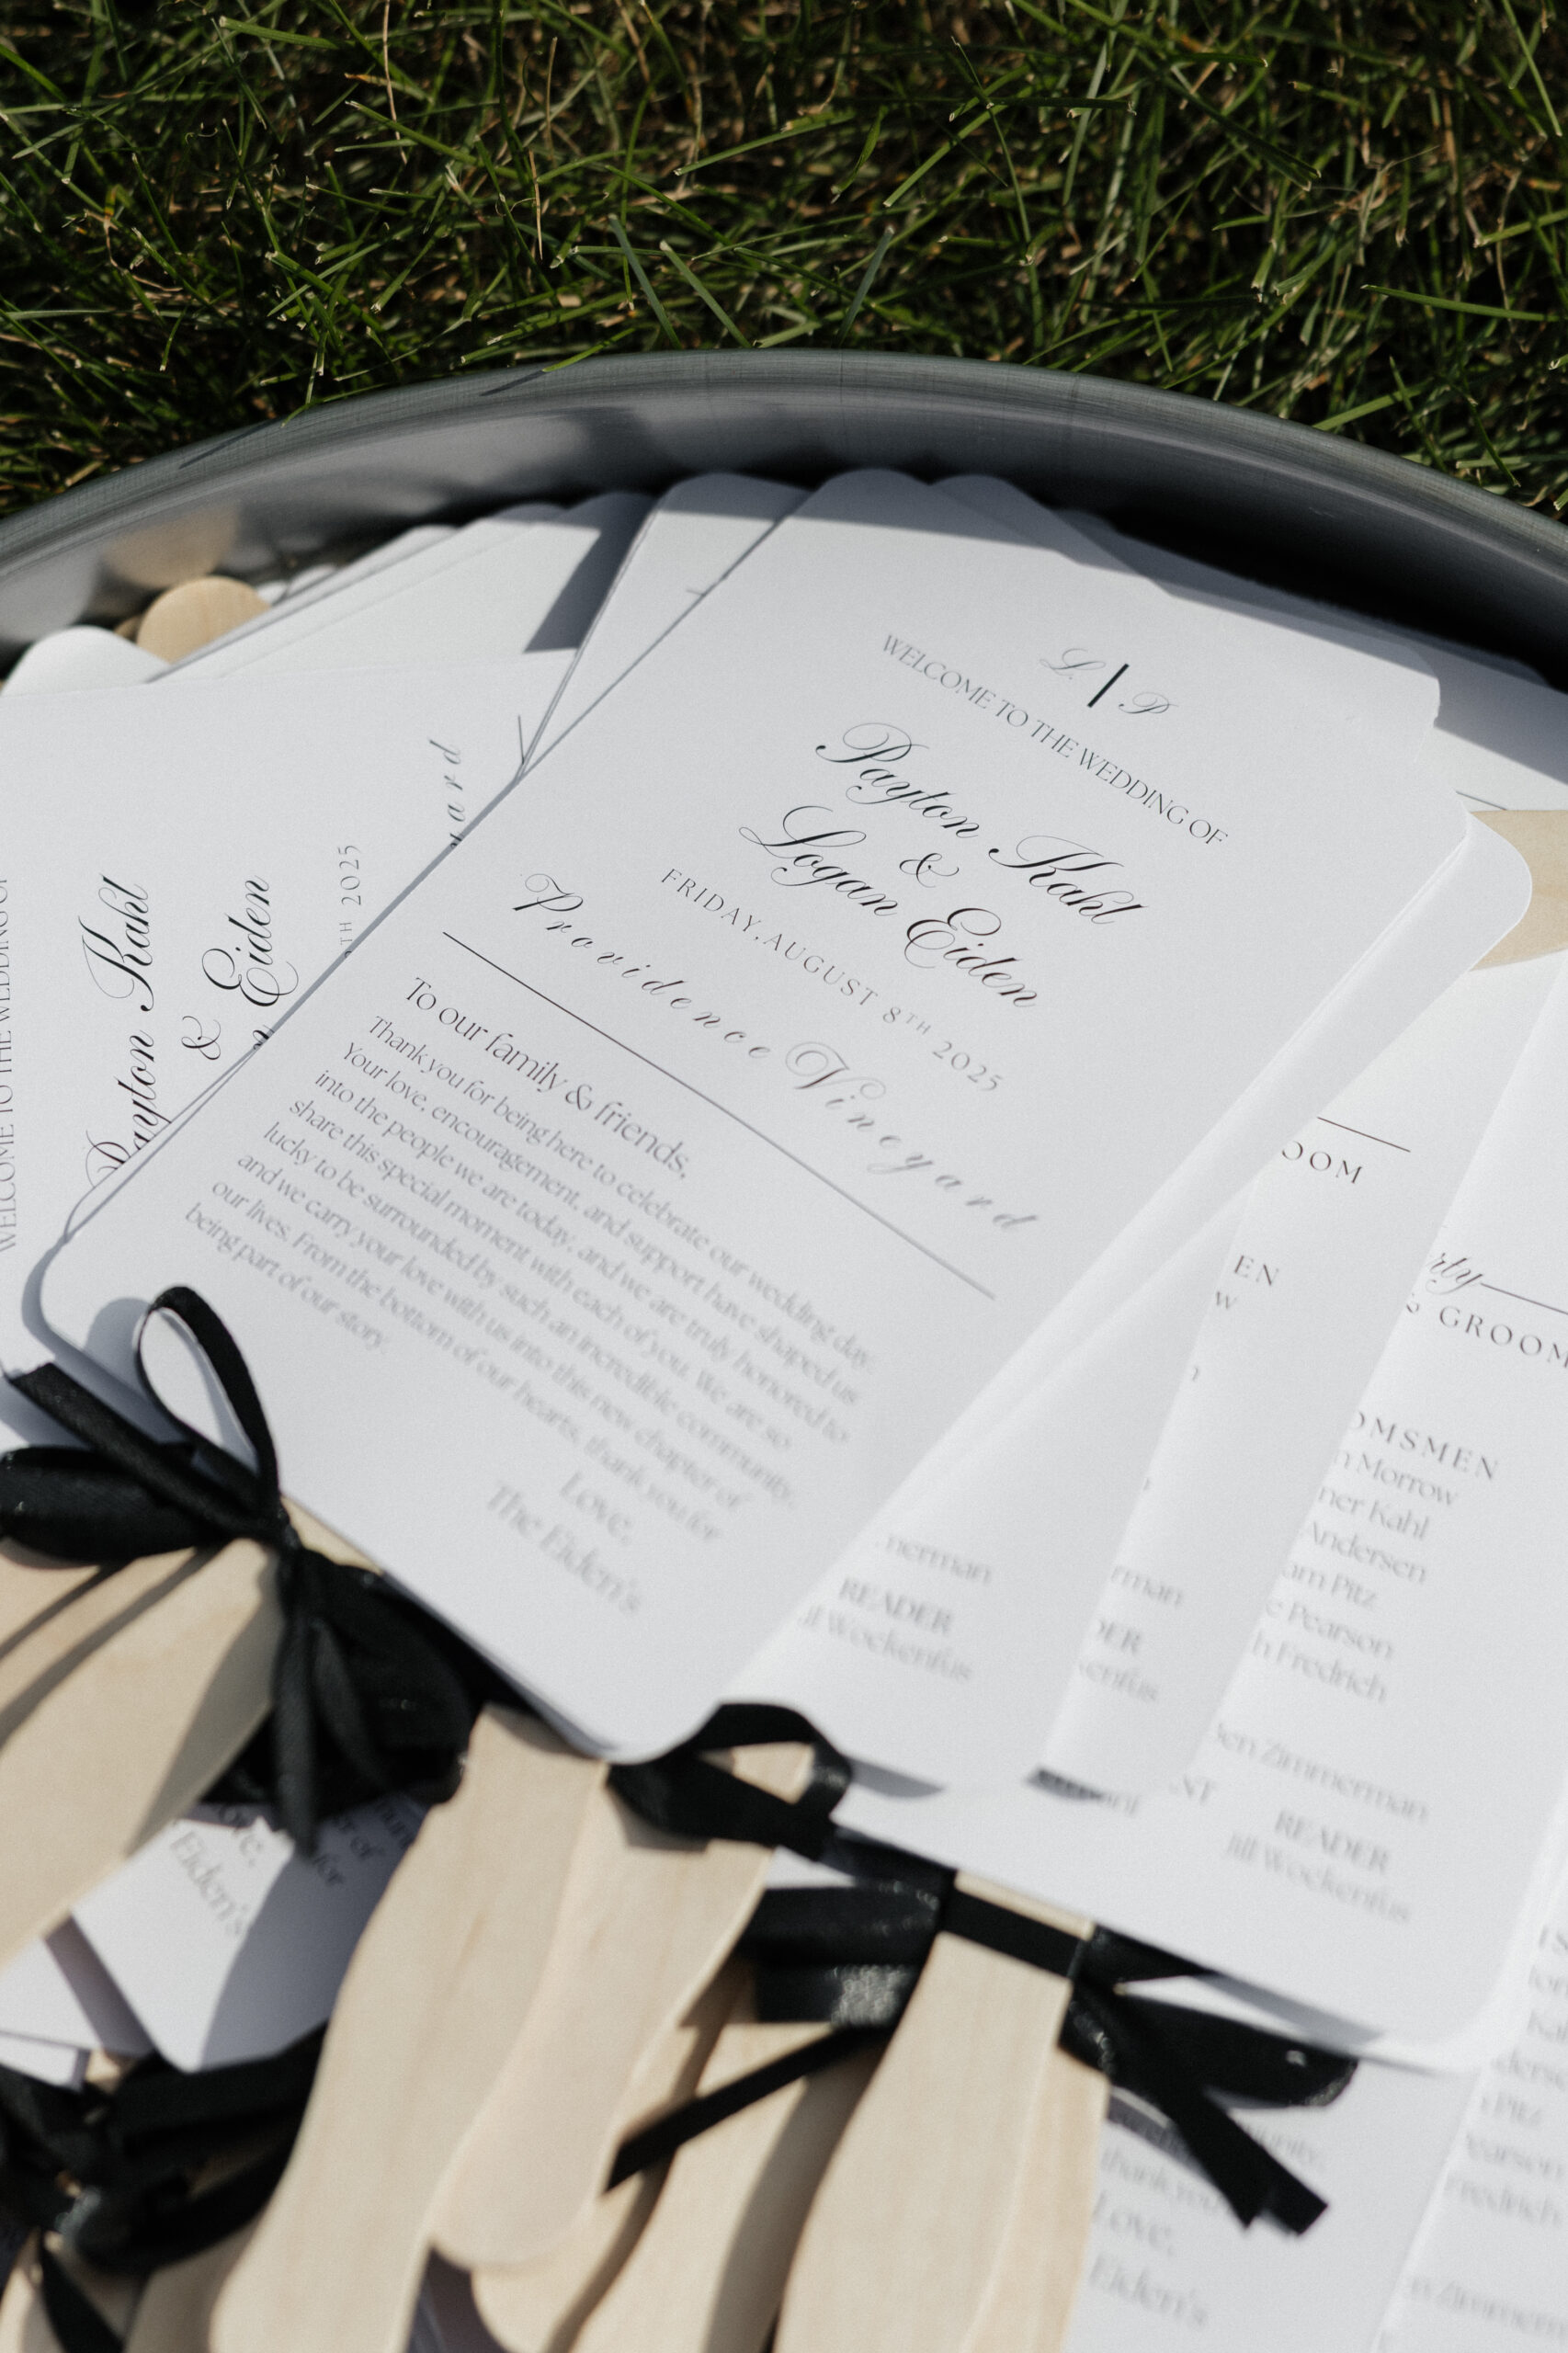 L | P
WELCOME TO THE WEDDING OF
Payton Kahl
&
Logan Eiden
FRIDAY, AUGUST 8TH 2025
Providence Vineyard
To our family & friends,
Thank you for being here to celebrate our wedding day.
Your love, encouragement, and support have shaped us
into the people we are today, and we are truly honored to
share this special moment with each of you. We are so
lucky to be surrounded by such an incredible community,
and we carry your love with us into this new chapter of
our lives. From the bottom of our hearts, thank you for
being part of our story.
Love,
The Eiden's
WELCOME TO THE WEDDING OF
Payton Kahl
&
Eiden
2025
READER
Wockenfus
GROOM
Morrow
Kahl
Andersen
Pitz
Pearson
Fredrich
Zimmerman
READER
Jill Wockenfus
Eiden's
Love,
Eiden's